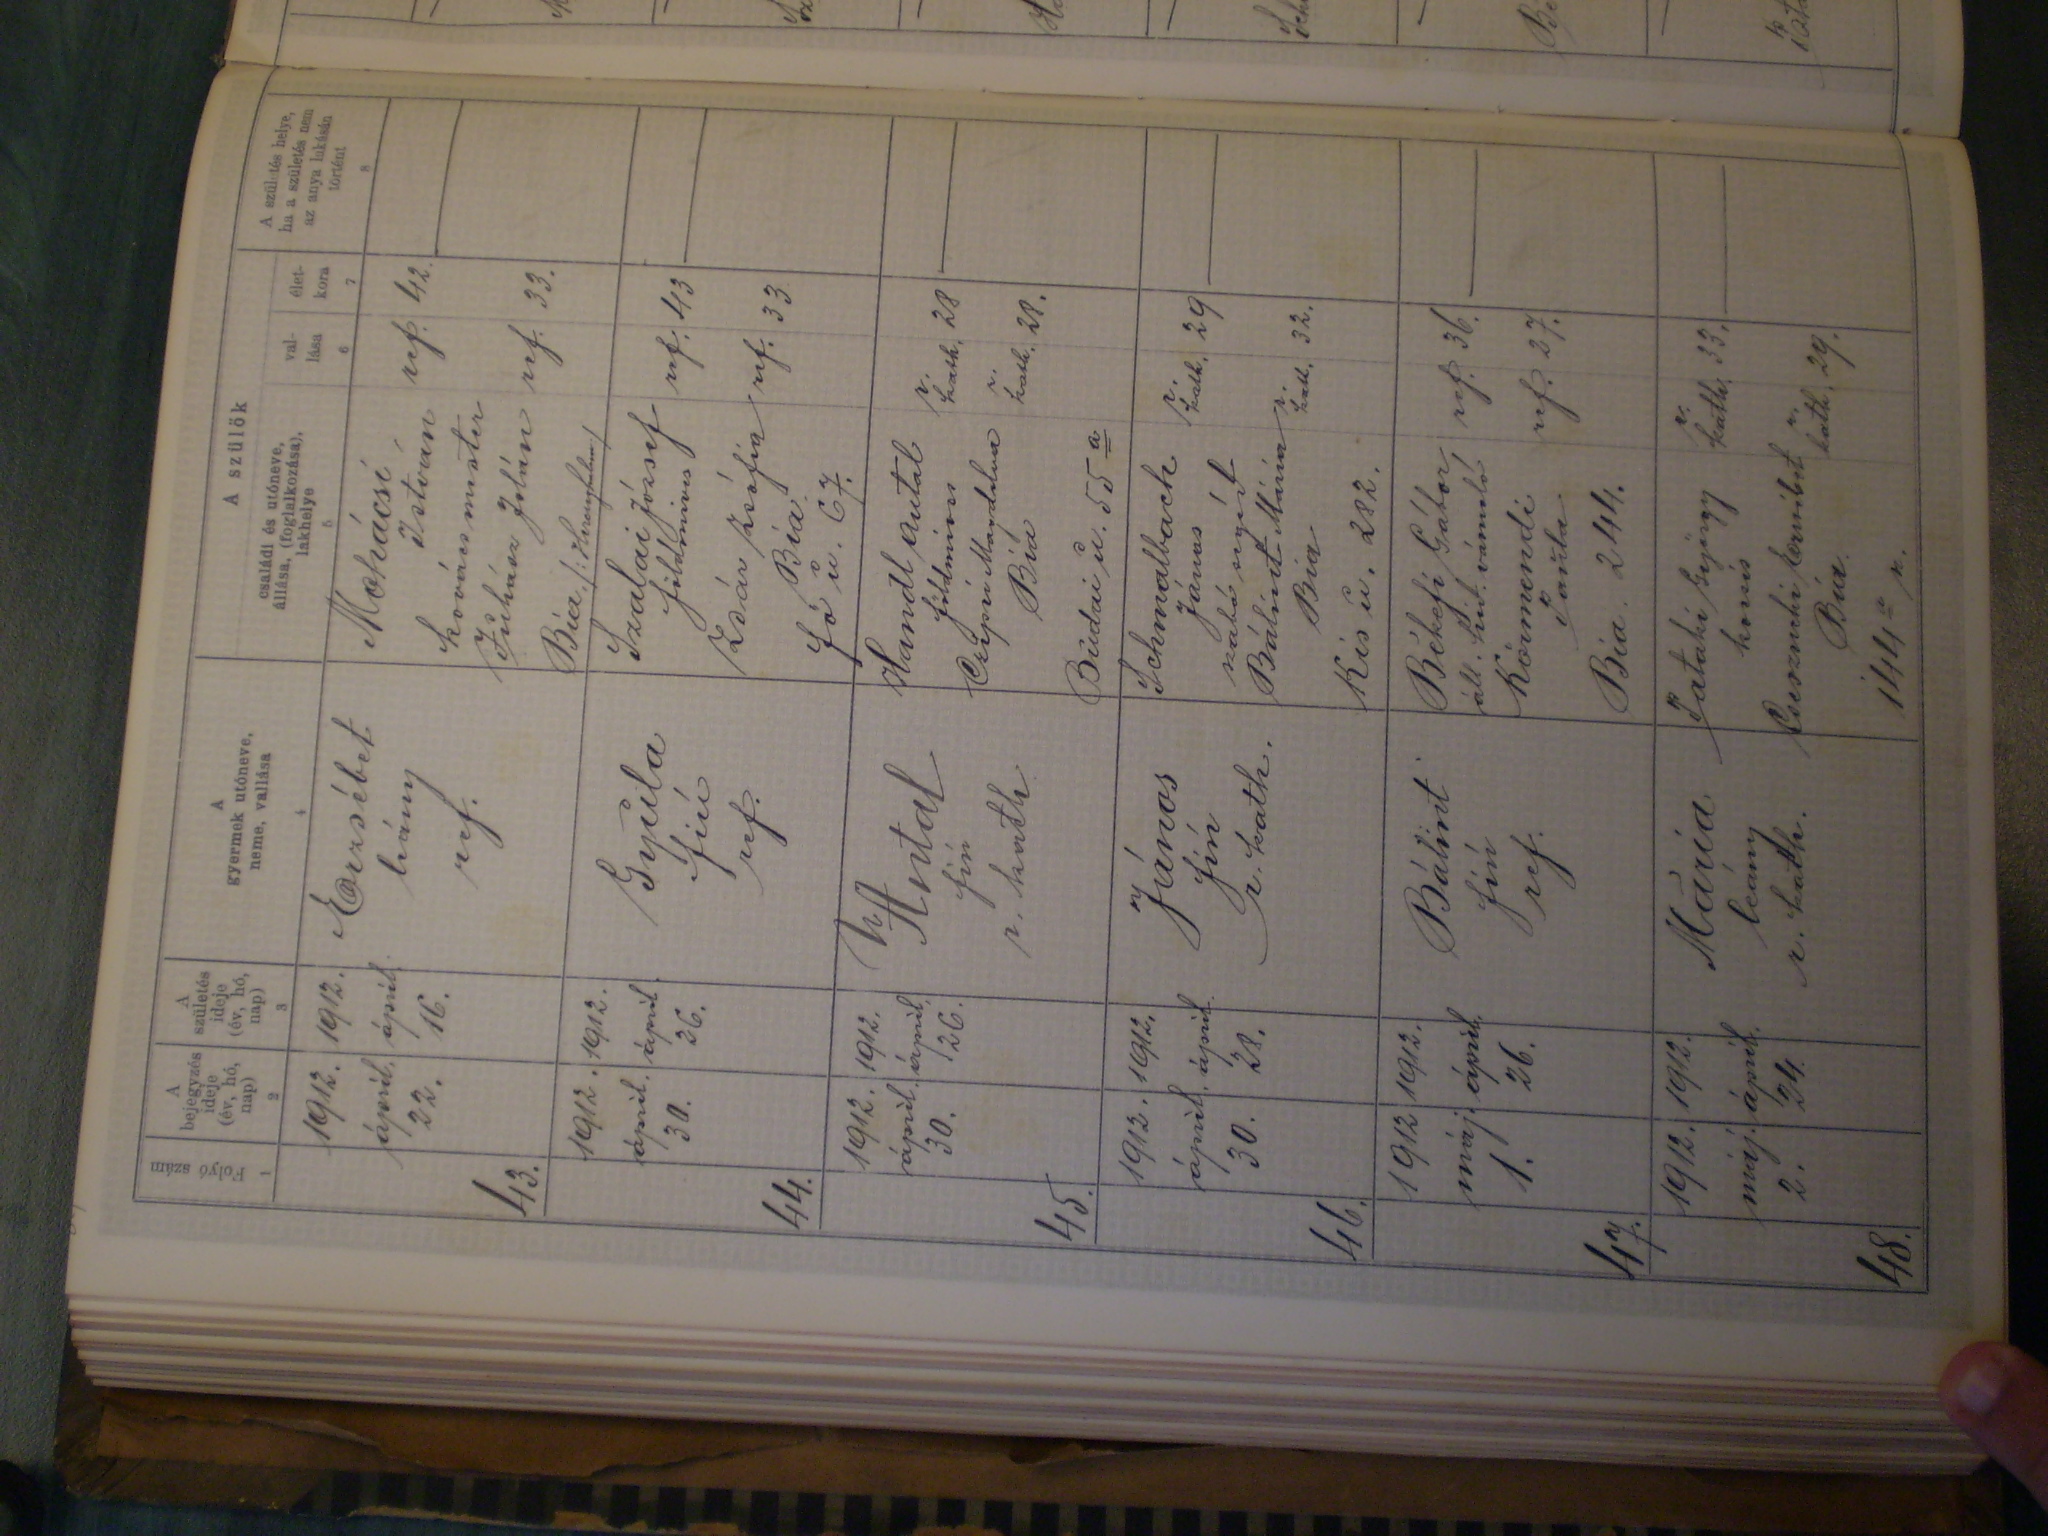 Folyó szám
A bejegyzés ideje (év, hó, nap)
A születés ideje (év, hó, nap)
A gyermek utóneve, neme, vallása
A szülők
családi és utóneve, állása, (foglalkozása), lakhelye
val-lása
élet-kora
A születés helye, ha a születés nem az anya lakásán történt
1 2 3 4 5 6 7 8
43.
1912. április 22.
1912. április 16.
Erzsébet
leány
ref.
Mohácsi
István ref. 42.
kovácsmester
Juhász Zolán ref. 33.
Bia
44.
1912. április 30.
1912. április 26.
Gyula
fiú
ref.
Szalai József ref. 43
földmives
Zsófia ref. 33.
Bia
Fő u. 67.
45.
1912. április 30.
1912. április 26.
Antal
fiú
r. kath.
Handl Antal r. kath. 28
földmives
Csipri Magdolna r. kath. 28.
Bia
Budai u. 55 a
46.
1912. április 30.
1912. április 28.
János
fiú
r. kath.
Schmalbach
János r. kath. 29
szabó segéd
Bálint Mária r. kath. 32.
Bia
Kis u. 282.
47.
1912 máj. 1.
1912. április 26.
Bálint
fiú
ref.
Békefi Gábor ref. 36.
áll. hid. vámoló
Körmendi
ref. 27.
Bia 244.
48.
1912. máj. 2.
1912. április 24.
Mária
leány
r. kath.
Pataki György r. kath. 33.
kocsis
Cseszneki Terézia r. kath. 29.
Bia
144 a